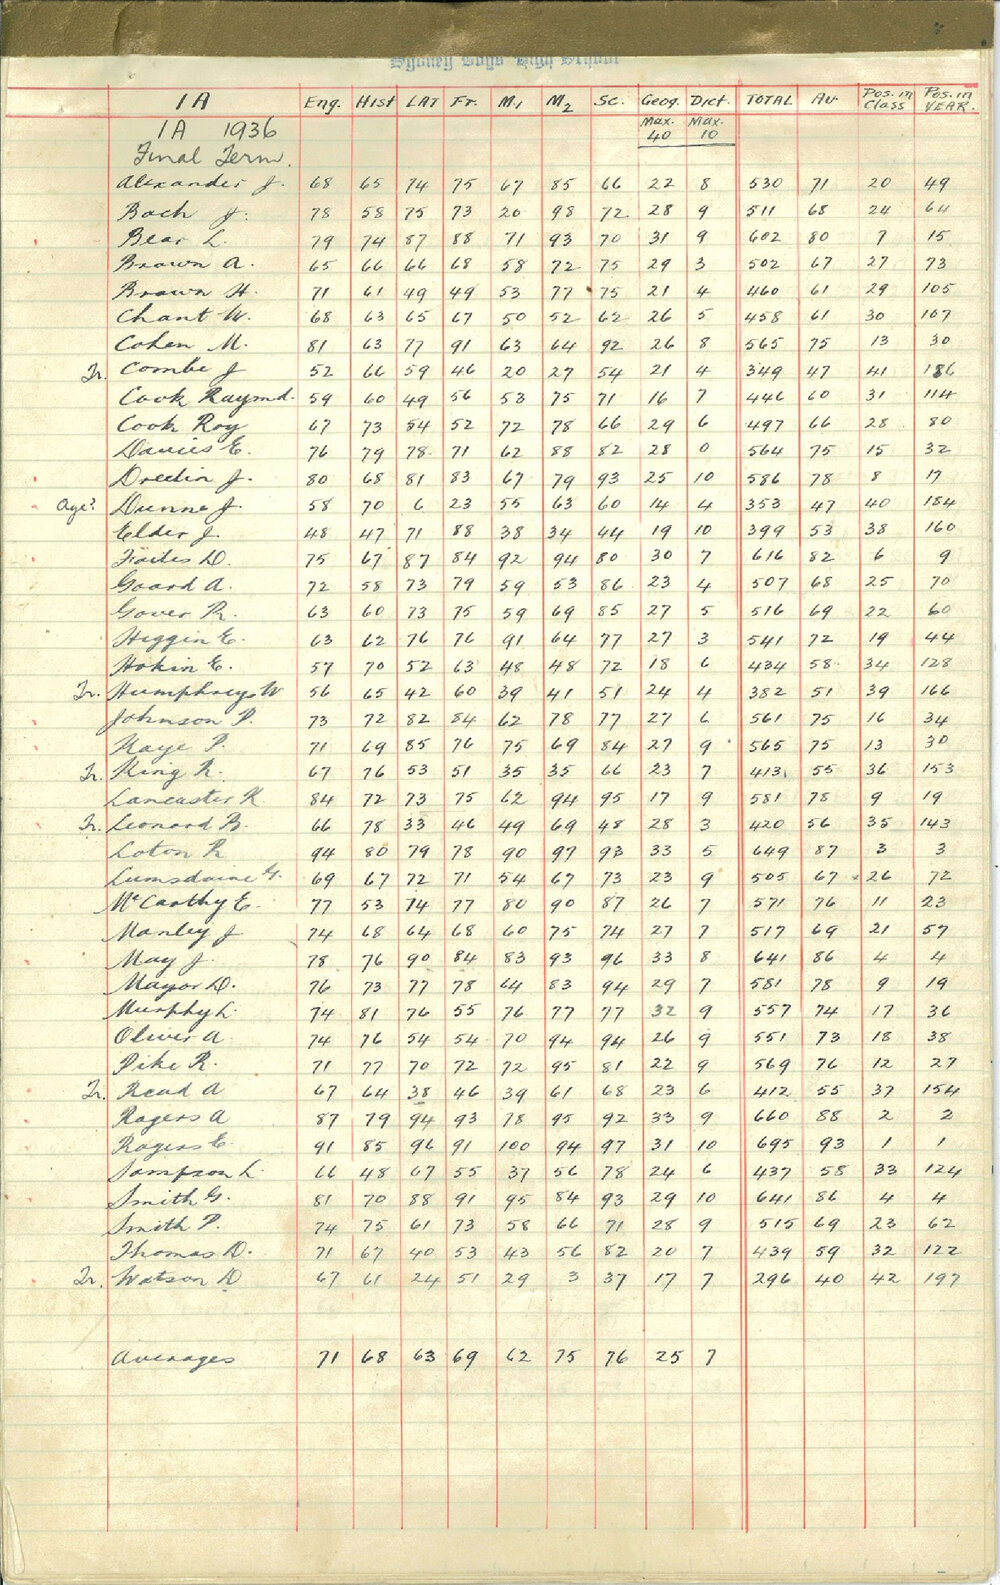 Sydney Boys High School
1A Eng. Hist LAT Fr. M1 M2 Sc. Geog. Dict. TOTAL Av. Pos. in Class Pos. in YEAR.
1A 1936 Max. 40 Max. 10
Final Term.
Alexander J. 68 65 74 75 67 85 66 22 8 530 71 20 49
Bach J. 78 58 75 73 20 98 72 28 9 511 68 24 64
Bear L. 79 74 87 88 71 93 70 31 9 602 80 7 15
Brown A. 65 66 66 68 58 72 75 29 3 502 67 27 73
Brown H. 71 61 49 49 53 77 75 21 4 460 61 29 105
Chant W. 68 63 65 67 50 52 62 26 5 458 61 30 107
Cohen M. 81 63 77 91 63 64 92 26 8 565 75 13 30
Tr. Combe J 52 66 59 46 20 27 54 21 4 349 47 41 186
Cook Raymd. 59 60 49 56 53 75 71 16 7 446 60 31 114
Cook Roy 67 73 54 52 72 78 66 29 6 497 66 28 80
Davies E. 76 79 78 71 62 88 82 28 0 564 75 15 32
J. 80 68 81 83 67 79 93 25 10 586 78 8 17
Age? Dunne J. 58 70 6 23 55 63 60 14 4 353 47 40 184
Elder J. 48 47 71 88 38 34 44 19 10 399 53 38 160
D. 75 67 87 84 92 94 80 30 7 616 82 6 9
Goard A. 72 58 73 79 59 53 86 23 4 507 68 25 70
Gover R. 63 60 73 75 59 69 85 27 5 516 69 22 60
Higgin E. 63 62 76 76 91 64 77 27 3 541 72 19 44
Hokin E. 57 70 52 63 48 48 72 18 6 434 58 34 128
Tr. Humphreys W 56 65 42 60 39 41 51 24 4 382 51 39 166
Johnson P. 73 72 82 84 62 78 77 27 6 561 75 16 34
Kaye P. 71 69 85 76 75 69 84 27 9 565 75 13 30
Tr. King R. 67 76 53 51 35 35 66 23 7 413 55 36 153
Lancaster K 84 72 73 75 62 94 95 17 9 581 78 9 19
Tr. Leonard B. 66 78 33 46 49 69 48 28 3 420 56 35 143
Loton R 94 80 79 78 90 97 93 33 5 649 87 3 3
Lumsdaine G. 69 67 72 71 54 67 73 23 9 505 67 26 72
McCarthy E. 77 53 74 77 80 90 87 26 7 571 76 11 23
Manley J 74 68 64 68 60 75 74 27 7 517 69 21 57
May J. 78 76 90 84 83 93 96 33 8 641 86 4 4
Mayor D. 76 73 77 78 64 83 94 29 7 581 78 9 19
Murphy L. 74 81 76 55 76 77 77 32 9 557 74 17 36
Oliver A. 74 76 54 54 70 94 94 26 9 551 73 18 38
Pike R. 71 77 70 72 72 95 81 22 9 569 76 12 27
Tr. Read A 67 64 38 46 39 61 68 23 6 412 55 37 154
Rogers A 87 79 94 93 78 95 92 33 9 660 88 2 2
Rogers E 91 85 96 91 100 94 97 31 10 695 93 1 1
Sampson L. 66 48 67 55 37 56 78 24 6 437 58 33 124
Smith G. 81 70 88 91 95 84 93 29 10 641 86 4 4
Smith P. 74 75 61 73 58 66 71 28 9 515 69 23 62
Thomas D. 71 67 40 53 43 56 82 20 7 439 59 32 122
Tr. Watson D 67 61 24 51 29 3 37 17 7 296 40 42 197
Averages 71 68 63 69 62 75 76 25 7